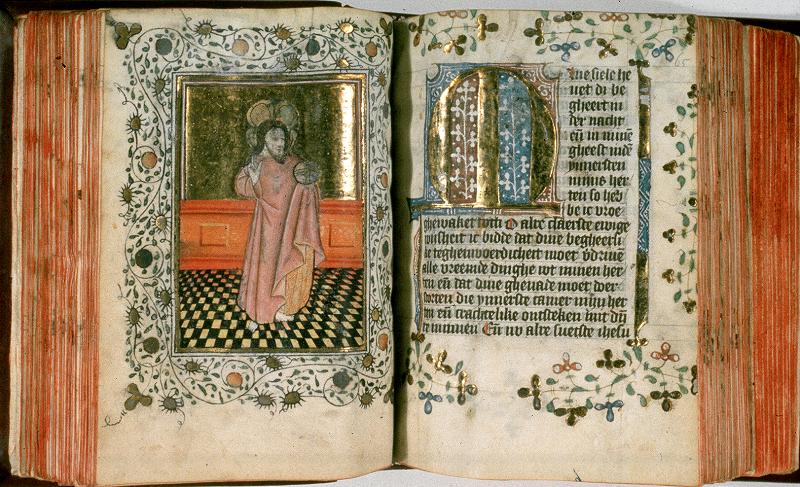 Mine siele he
uet di be
gheert in
der nacht
eñ in mine
gheest indē
ynnersten
mijns her
ten so heb
be ic vroe
ghewaket tot di O alre claerste ewige
wijsheit ic bidde dat dine begheerlic
ke teghenwoerdicheit moet v̄driue
alle vreemde dinghe wt minen her
ten eñ dat dine ghenade moet doer
soeten die ynnerste camer mijnr her
ten eñ crachtelike ontsteken mit dijr
re minnen En nv alre suetste ihesu